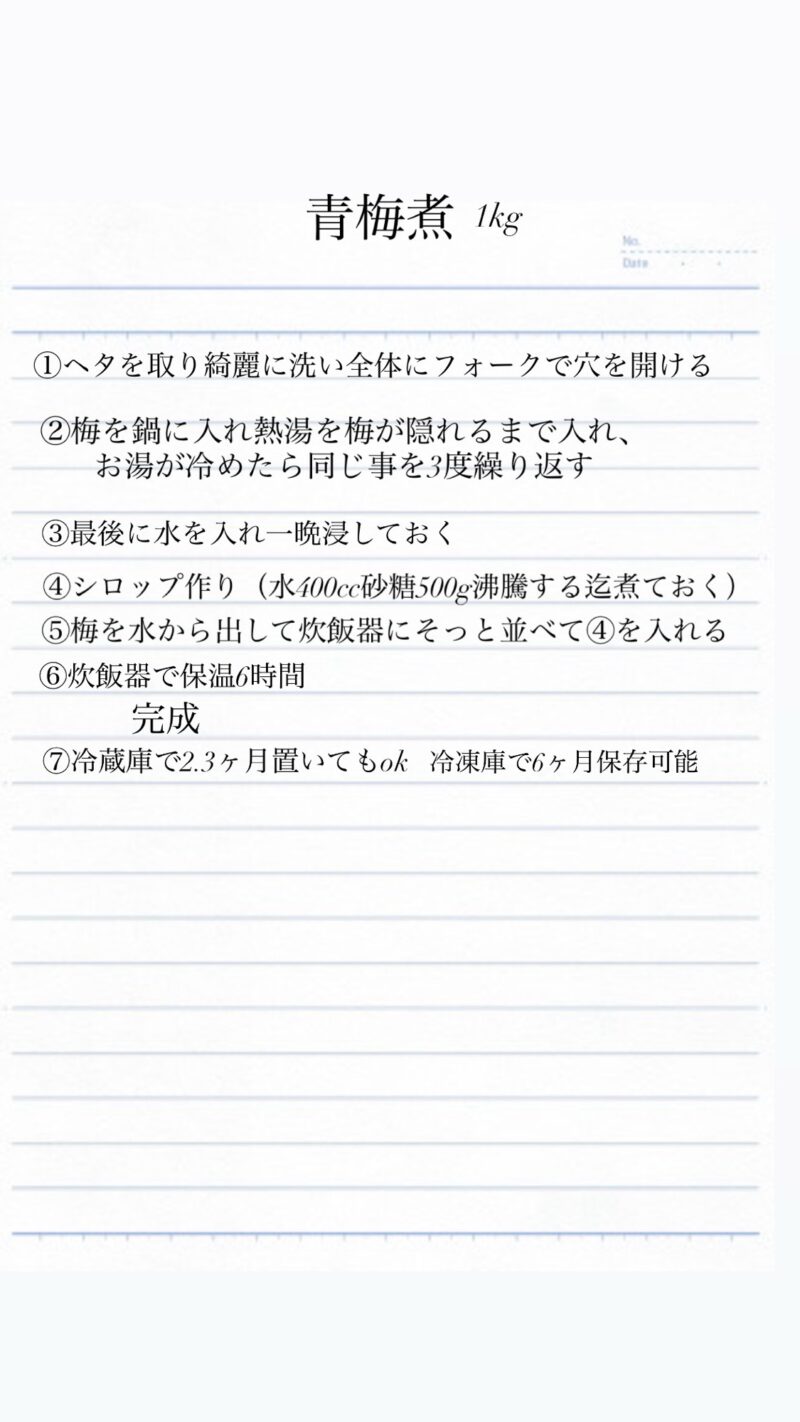 青梅煮 1kg
No.
Date
①ヘタを取り綺麗に洗い全体にフォークで穴を開ける
②梅を鍋に入れ熱湯を梅が隠れるまで入れ、
お湯が冷めたら同じ事を3度繰り返す
③最後に水を入れ一晩浸しておく
④シロップ作り（水400cc砂糖500g沸騰する迄煮ておく）
⑤梅を水から出して炊飯器にそっと並べて④を入れる
⑥炊飯器で保温6時間
完成
⑦冷蔵庫で2.3ヶ月置いてもok 冷凍庫で6ヶ月保存可能